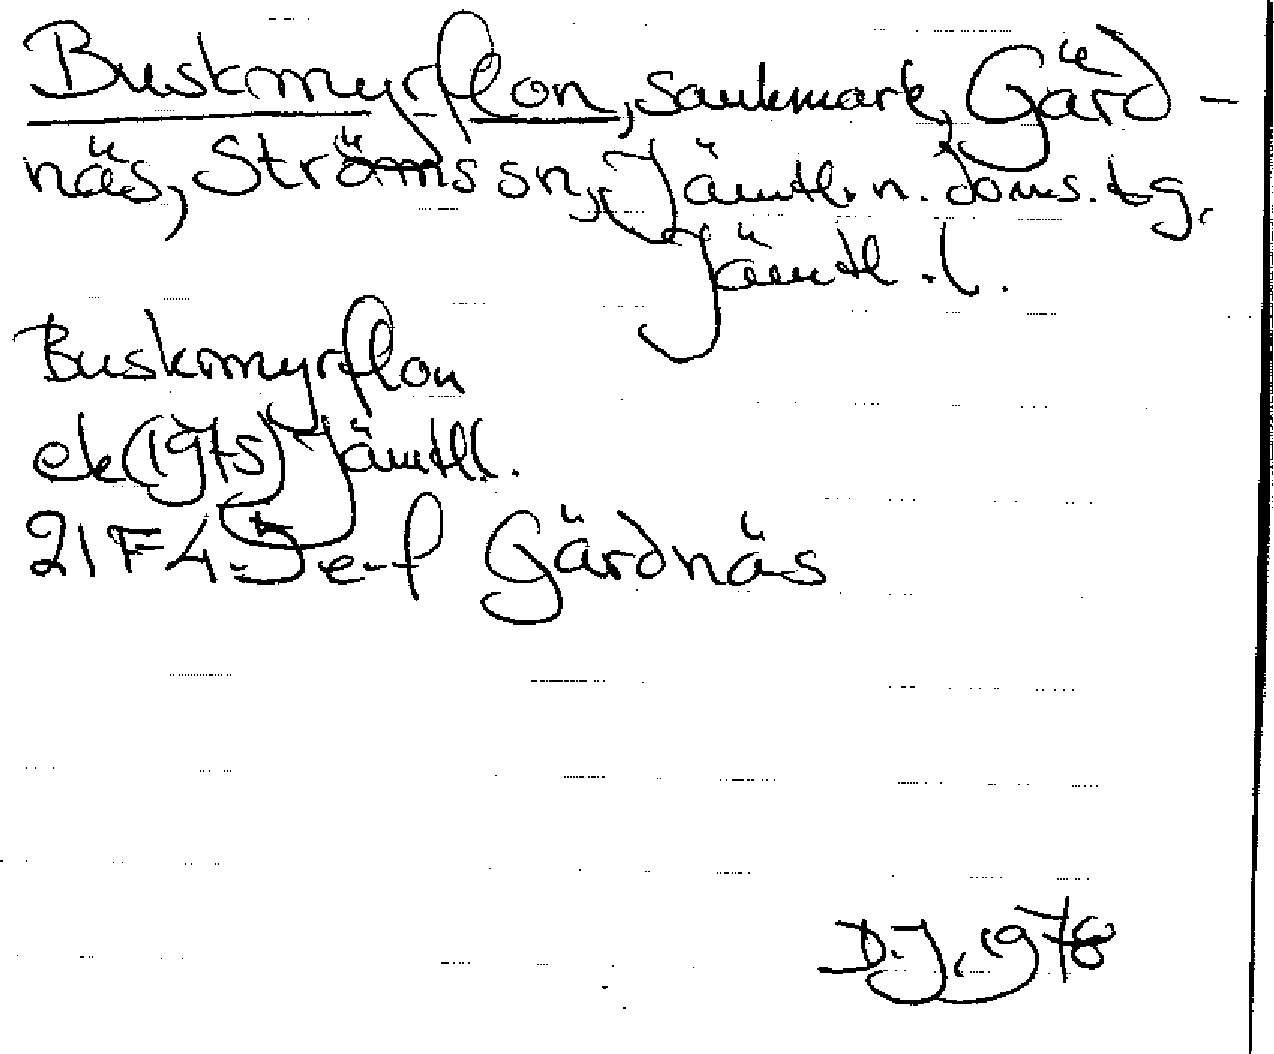 Buskmyrflon, sankmark, Gärd-
näs, Ströms sn, Jämtl. n. doms.tg,
Jämtl. l.
Buskmyrflon
ek (1975) Jämtll.
21F4-5e-f Gärdnäs
D.J. 1978